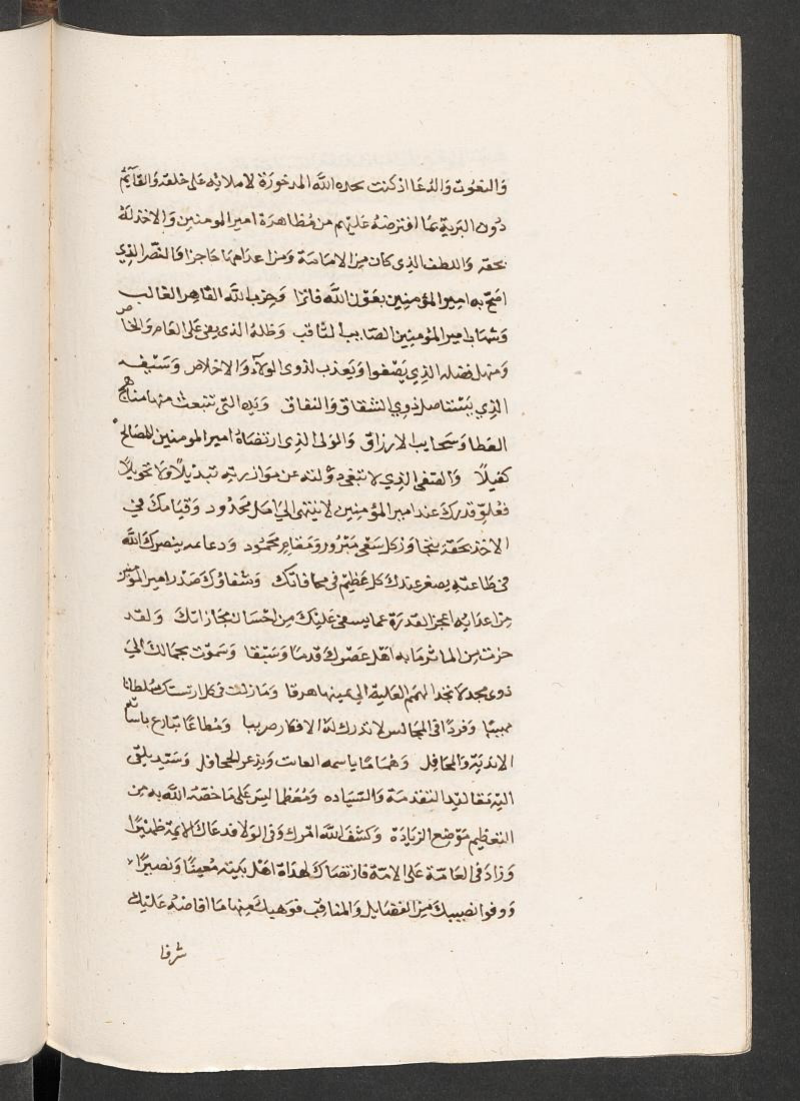 والنعوت والدعا اذ كنت بحده الله المدخورة لاملايه على خلقه والقايم
دون البرية عما افترضه عليهم من مظاهرة امير المومنين والاخذ له
بحقه واللطف الذي كان من الامامة ومن اعدامها حاجزا والنصر الذي
اصح به امير المؤمنين بعون الله فائزا وحزب الله القاهر الغالب
وشهاب امير المؤمنين الصايب الثاقب وظله الذي يفي على العام والخاص
ومنهل فضله الذي يصفوا ويعذب لذوي الولاء والاخلاص وسيفه
الذي يستاصل ذوي الشقاق والنفاق ويده التي تنبعث منها مناهج
العطا وسحايب الارزاق والولى الذي ارتضاه امير المومنين للمصالح
كفيلا والصفى الذي لا تبغى دولته عن موازرته تبديلا ولا تحويلا
فعلو قدرك عند امير المؤمنين لا ينتهي الى امل محدود وقيامك في
الاخذ بحقه يتجاوز كل سعى مبرور ومقام محمود ودعامه ينصرك الله
في طاعته يصغر عندك كل عظيم في مكافاتك وشفاوك صدر امير المؤمنين
من اعدايه اعجز القدرة عما يسعى عليك من احسان مجازاتك ولقد
حزت من الماثر ما به اهل عصرك قدما وسبقا وسموت بجمالك الى
ذوى مجد لا تجد الهمم العلية الى عينه مرقا وما زلت في كل رتبتك سلطانا
مهيبا وفردا في المجالس لا تدرك له الافكار ضريبا ومطاعا تبارع باسا ثم
الاندية والمحافل وهماما ياسمه العات ويذعر الجحافل وسيد يلقى
اليه مقاليد التقدمة والسياده ومعظما ليس على ما خصه الله به من
التعظيم موضع الزيادة وكشف الله امرك وفى الولا فدعاك للايمة ظهيرا
وزاد في العامة على الامة فارتضاك لهداة اهل بيته معينا ونصيرا
ووفر نصيبك من الفضايل والمناقب فوهبك منها ما افاضه عليك
شرفا